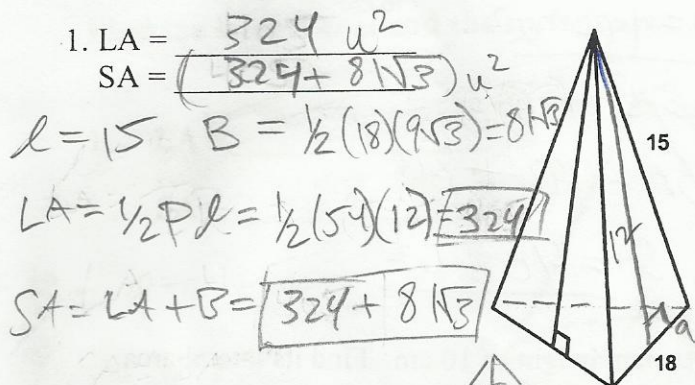 1. LA = 324 u²
SA = (324 + 81√3) u²
l = 15 B = ½(18)(9√3) = 81√3
LA = ½Pl = ½(54)(12) = 324
SA = LA + B = 324 + 81√3
15
12
9
18